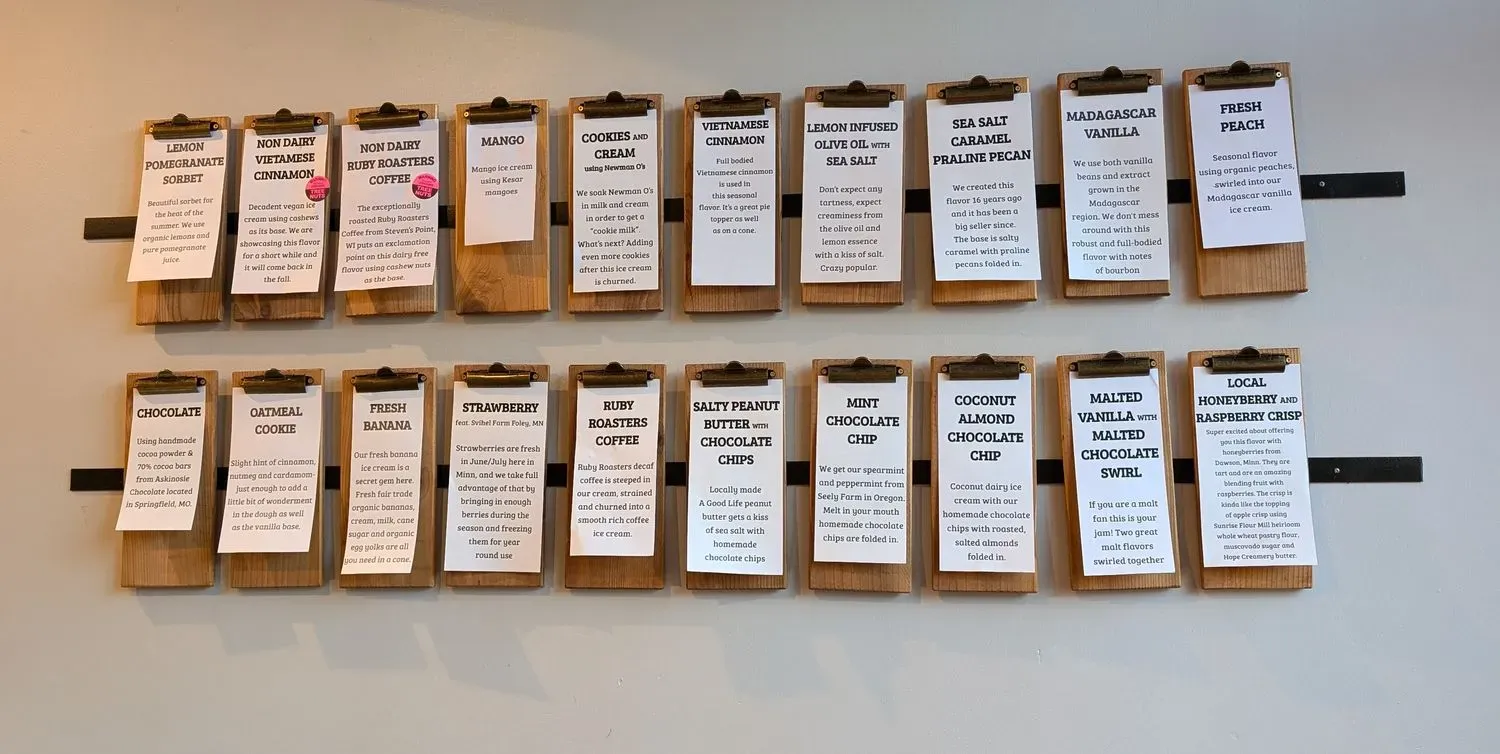 LEMON
POMEGRANATE
SORBET
Beautiful sorbet for
the heat of the
summer. We use
organic lemons and
pure pomegranate
juice.
NON DAIRY
VIETAMESE
CINNAMON
TREE
NUTS
Decadent vegan ice
cream using cashews
as its base. We are
showcasing this flavor
for a short while and
it will come back in
the fall.
NON DAIRY
RUBY ROASTERS
COFFEE
TREE
NUTS
The exceptionally
roasted Ruby Roasters
Coffee from Steven's Point,
WI puts an exclamation
point on this dairy free
flavor using cashew nuts
as the base.
MANGO
Mango ice cream
using Kesar
mangoes
COOKIES AND
CREAM
using Newman O's
We soak Newman O's
in milk and cream
in order to get a
"cookie milk".
What's next? Adding
even more cookies
after this ice cream
is churned.
VIETNAMESE
CINNAMON
Full bodied
Vietnamese cinnamon
is used in
this seasonal
flavor. It's a great pie
topper as well
as on a cone.
LEMON INFUSED
OLIVE OIL WITH
SEA SALT
Don't expect any
tartness, expect
creaminess from
the olive oil and
lemon essence
with a kiss of salt.
Crazy popular.
SEA SALT
CARAMEL
PRALINE PECAN
We created this
flavor 16 years ago
and it has been a
big seller since.
The base is salty
caramel with praline
pecans folded in.
MADAGASCAR
VANILLA
We use both vanilla
beans and extract
grown in the
Madagascar
region. We don't mess
around with this
robust and full-bodied
flavor with notes
of bourbon
FRESH
PEACH
Seasonal flavor
using organic peaches,
swirled into our
Madagascar vanilla
ice cream.
CHOCOLATE
Using handmade
cocoa powder &
70% cocoa bars
from Askinosie
Chocolate located
in Springfield, MO.
OATMEAL
COOKIE
Slight hint of cinnamon,
nutmeg and cardamom-
just enough to add a
little bit of wonderment
in the dough as well
as the vanilla base.
FRESH
BANANA
Our fresh banana
ice cream is a
secret gem here.
Fresh fair trade
organic bananas,
cream, milk, cane
sugar and organic
egg yolks are all
you need in a cone.
STRAWBERRY
feat. Svihel Farm Foley, MN
Strawberries are fresh
in June/July here in
Minn, and we take full
advantage of that by
bringing in enough
berries during the
season and freezing
them for year
round use
RUBY
ROASTERS
COFFEE
Ruby Roasters decaf
coffee is steeped in
our cream, strained
and churned into a
smooth rich coffee
ice cream.
SALTY PEANUT
BUTTER WITH
CHOCOLATE
CHIPS
Locally made
A Good Life peanut
butter gets a kiss
of sea salt with
homemade
chocolate chips
MINT
CHOCOLATE
CHIP
We get our spearmint
and peppermint from
Seely Farm in Oregon.
Melt in your mouth
homemade chocolate
chips are folded in.
COCONUT
ALMOND
CHOCOLATE
CHIP
Coconut dairy ice
cream with our
homemade chocolate
chips with roasted,
salted almonds
folded in.
MALTED
VANILLA WITH
MALTED
CHOCOLATE
SWIRL
If you are a malt
fan this is your
jam! Two great
malt flavors
swirled together
LOCAL
HONEYBERRY AND
RASPBERRY CRISP
Super excited about offering
you this flavor with
honeyberries from
Dawson, Minn. They are
tart and are an amazing
blending fruit with
raspberries. The crisp is
kinda like the topping
of apple crisp using
Sunrise Flour Mill heirloom
whole wheat pastry flour,
muscovado sugar and
Hope Creamery butter.